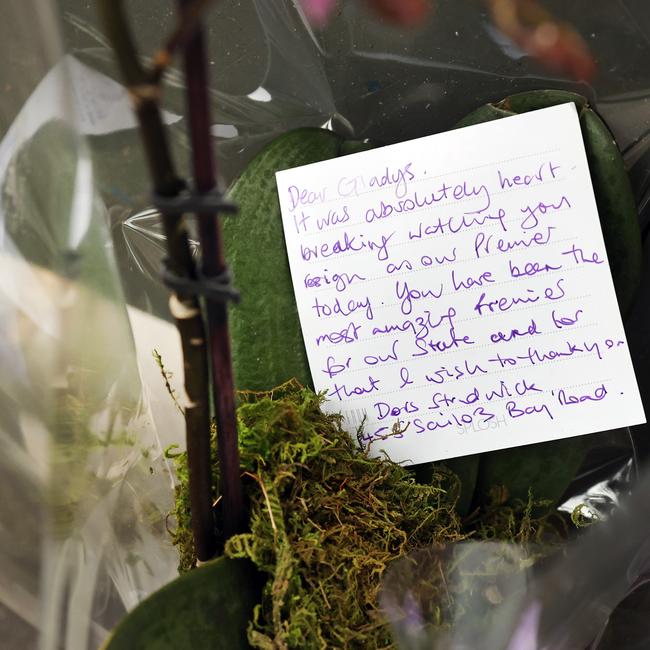 Dear Gladys.
It was absolutely heart
breaking watching you
resign as our Premier
today. You have been the
most amazing Premier
for our State and for
that I wish to thank you
Doris Strudwick
Sailors Bay Road.
SPLOSH